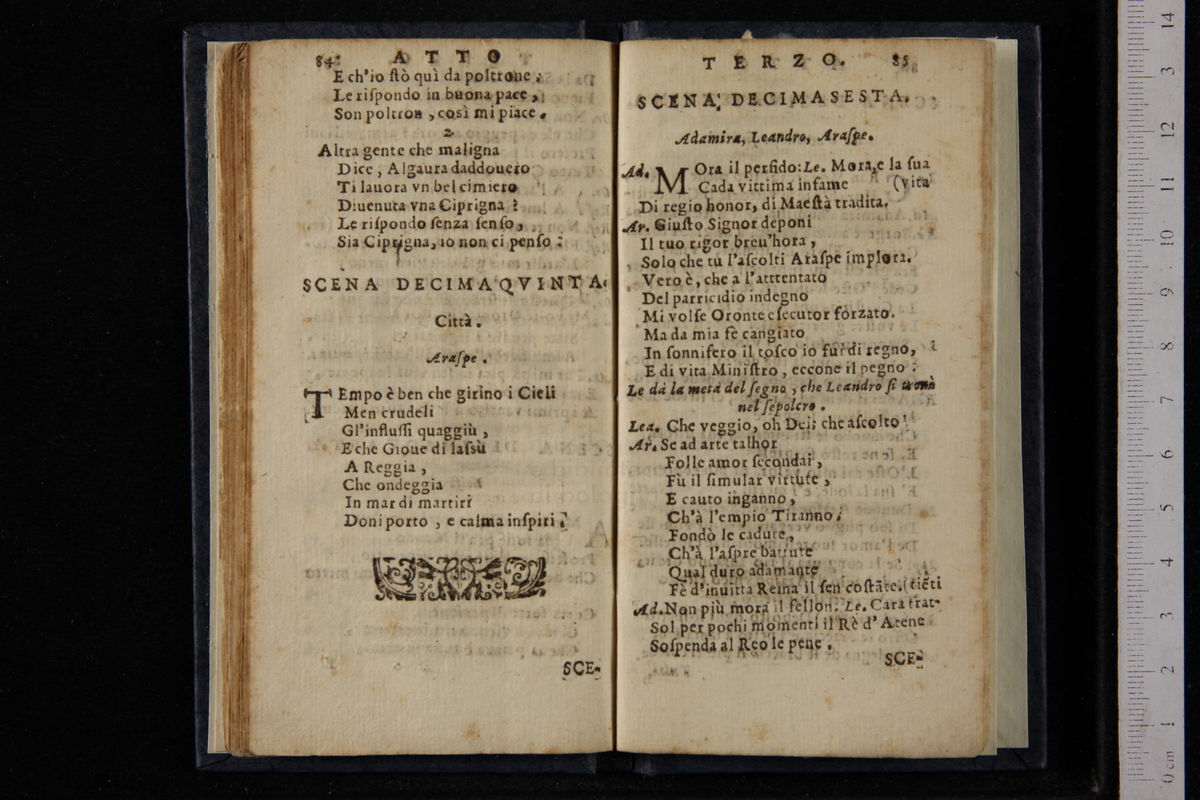 84 ATTO
E ch'io ſtò quì da poltrone;
Le riſpondo in buona pace,
Son poltron, così mi piace.
2
Altra gente che maligna
Dice, Algaura daddouero
Ti lauora vn bel cimiero
Diuenuta vna Ciprigna?
Le riſpondo ſenza ſenſo,
Sia Ciprigna, io non ci penſo:
SCENA DECIMAQVINTA.
Città.
Araſpe.
TEmpo è ben che girino i Cieli
Men crudeli
Gl'influſſi quaggiù,
E che Gioue di laſsù
A Reggia,
Che ondeggia
In mar di martiri
Doni porto, e calma inſpiri.
SCE-
TERZO. 85
SCENA DECIMASESTA.
Adamira, Leandro, Araſpe.
Ad. MOra il perfido: Le. Mora, e la ſua
Cada vittima infame (vita
Di regio honor, di Maeſtà tradita.
Ar. Giuſto Signor deponi
Il tuo rigor breu'hora,
Solo che tu l'aſcolti Araſpe implora.
Vero è, che a l'atttentato
Del parricidio indegno
Mi volſe Oronte eſecutor forzato.
Ma da mia fè cangiato
In ſonnifero il toſco io fui di regno,
E di vita Miniſtro, eccone il pegno:
Le dà la metà del ſegno, che Leandro ſi trouò
nel ſepolcro.
Lea. Che veggio, oh Dei; che aſcolto!
Ar. Se ad arte talhor
Folle amor ſecondai,
Fù il ſimular virtute,
E cauto inganno,
Ch'à l'empio Tiranno;
Fondò le cadute,
Ch'à l'aſpre battute
Qual duro adamante
Fè d'inuitta Reina il ſen coſtãte. (tieti
Ad. Non più mora il fellon. Le. Cara trat-
Sol per pochi momenti il Rè d'Atene
Soſpenda al Reo le pene.
SCE-